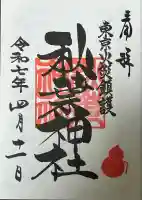 奉拝
東京火防祖護
秋葉神社
令和七年四月十二日